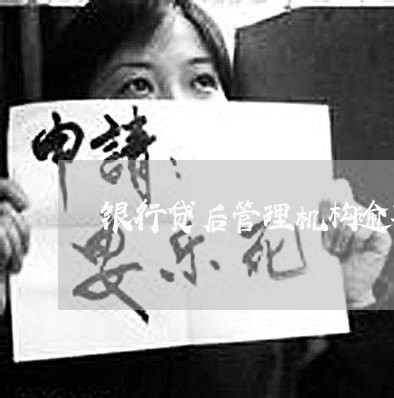 申請：
银行贷后管理机构逾
安乐死